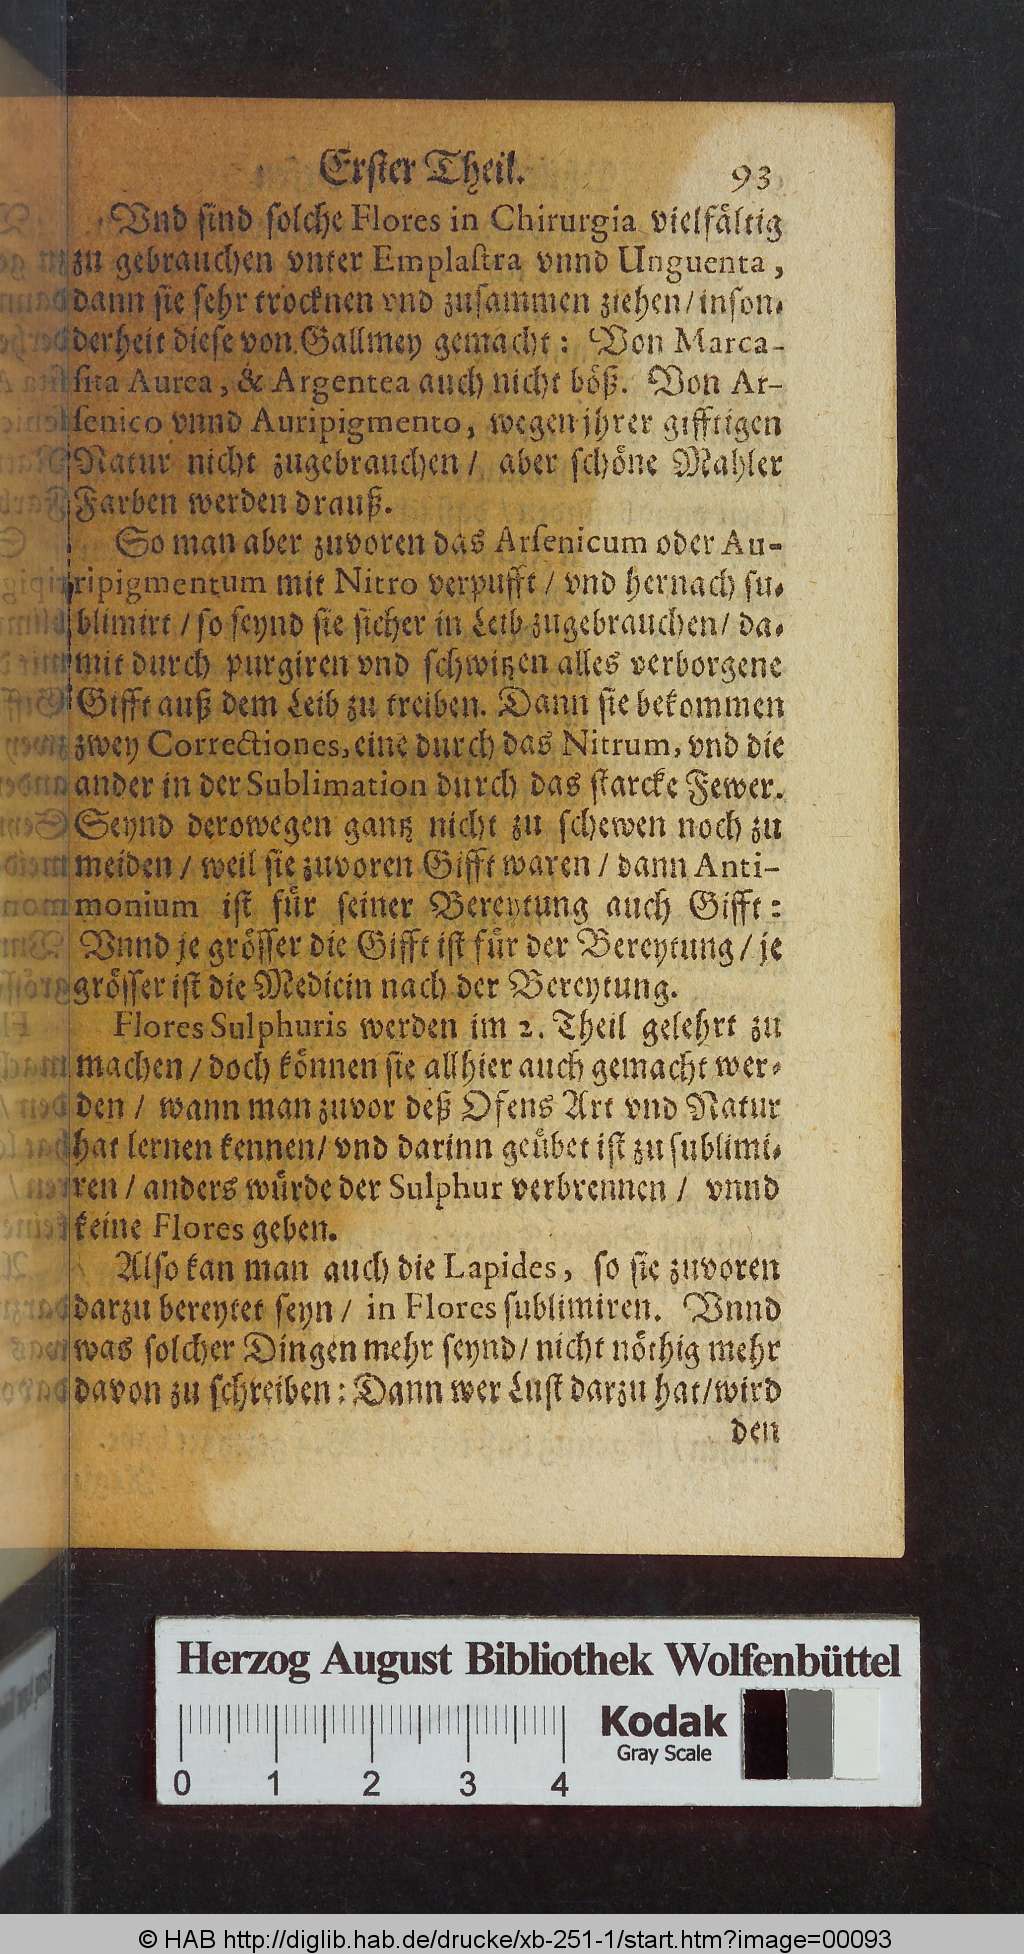 Erster Theil. 93
Vnd sind solche Flores in Chirurgia vielfåltig
zu gebrauchen vnter Emplastra vnnd Unguenta,
dann sie sehr trocknen vnd zusammen ziehen/ inson-
derheit diese von Gallmey gemacht: Von Marca-
sita Aurea, & Argentea auch nicht böß. Von Ar-
senico vnnd Auripigmento, wegen jhrer gifftigen
Natur nicht zugebrauchen/ aber schöne Mahler
Farben werden drauß.
So man aber zuvoren das Arsenicum oder Au-
ripigmentum mit Nitro verpufft/ vnd hernach su-
blimirt/ so seynd sie sicher in Leib zugebrauchen/ da-
mit durch purgiren vnd schwitzen alles verborgene
Gifft auß dem Leib zu treiben. Dann sie bekommen
zwey Correctiones, eine durch das Nitrum, vnd die
ander in der Sublimation durch das starcke Fewer.
Seynd derowegen gantz nicht zu schewen noch zu
meiden/ weil sie zuvoren Gifft waren/ dann Anti-
monium ist für seiner Bereytung auch Gifft:
Vnnd je grösser die Gifft ist für der Bereytung/ je
grösser ist die Medicin nach der Bereytung.
Flores Sulphuris werden im 2. Theil gelehrt zu
machen/ doch können sie allhier auch gemacht wer-
den/ wann man zuvor deß Ofens Art vnd Natur
hat lernen kennen/ vnd darinn geübet ist zu sublimi-
ren/ anders würde der Sulphur verbrennen/ vnnd
keine Flores geben.
Also kan man auch die Lapides, so sie zuvoren
darzu bereytet seyn/ in Flores sublimiren. Vnnd
was solcher Dingen mehr seynd/ nicht nöthig mehr
davon zu schreiben: Dann wer Lust darzu hat/ wird
den
Herzog August Bibliothek Wolfenbüttel
Kodak
Gray Scale
0 1 2 3 4
© HAB http://diglib.hab.de/drucke/xb-251-1/start.htm?image=00093